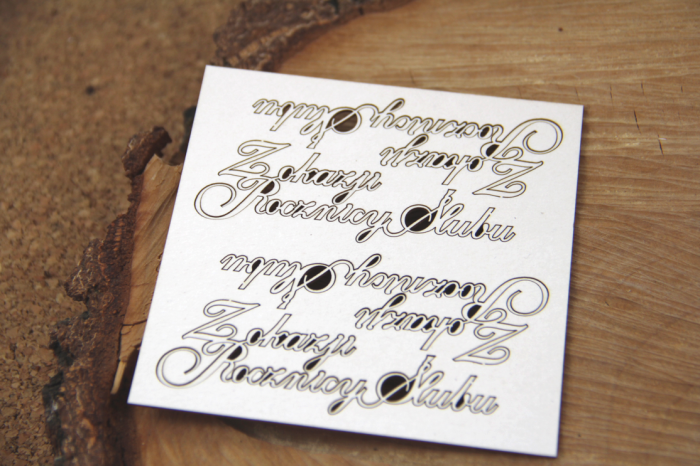 Z okazji
Rocznicy Ślubu
Z okazji
Rocznicy Ślubu
Z okazji
Rocznicy Ślubu
Z okazji
Rocznicy Ślubu